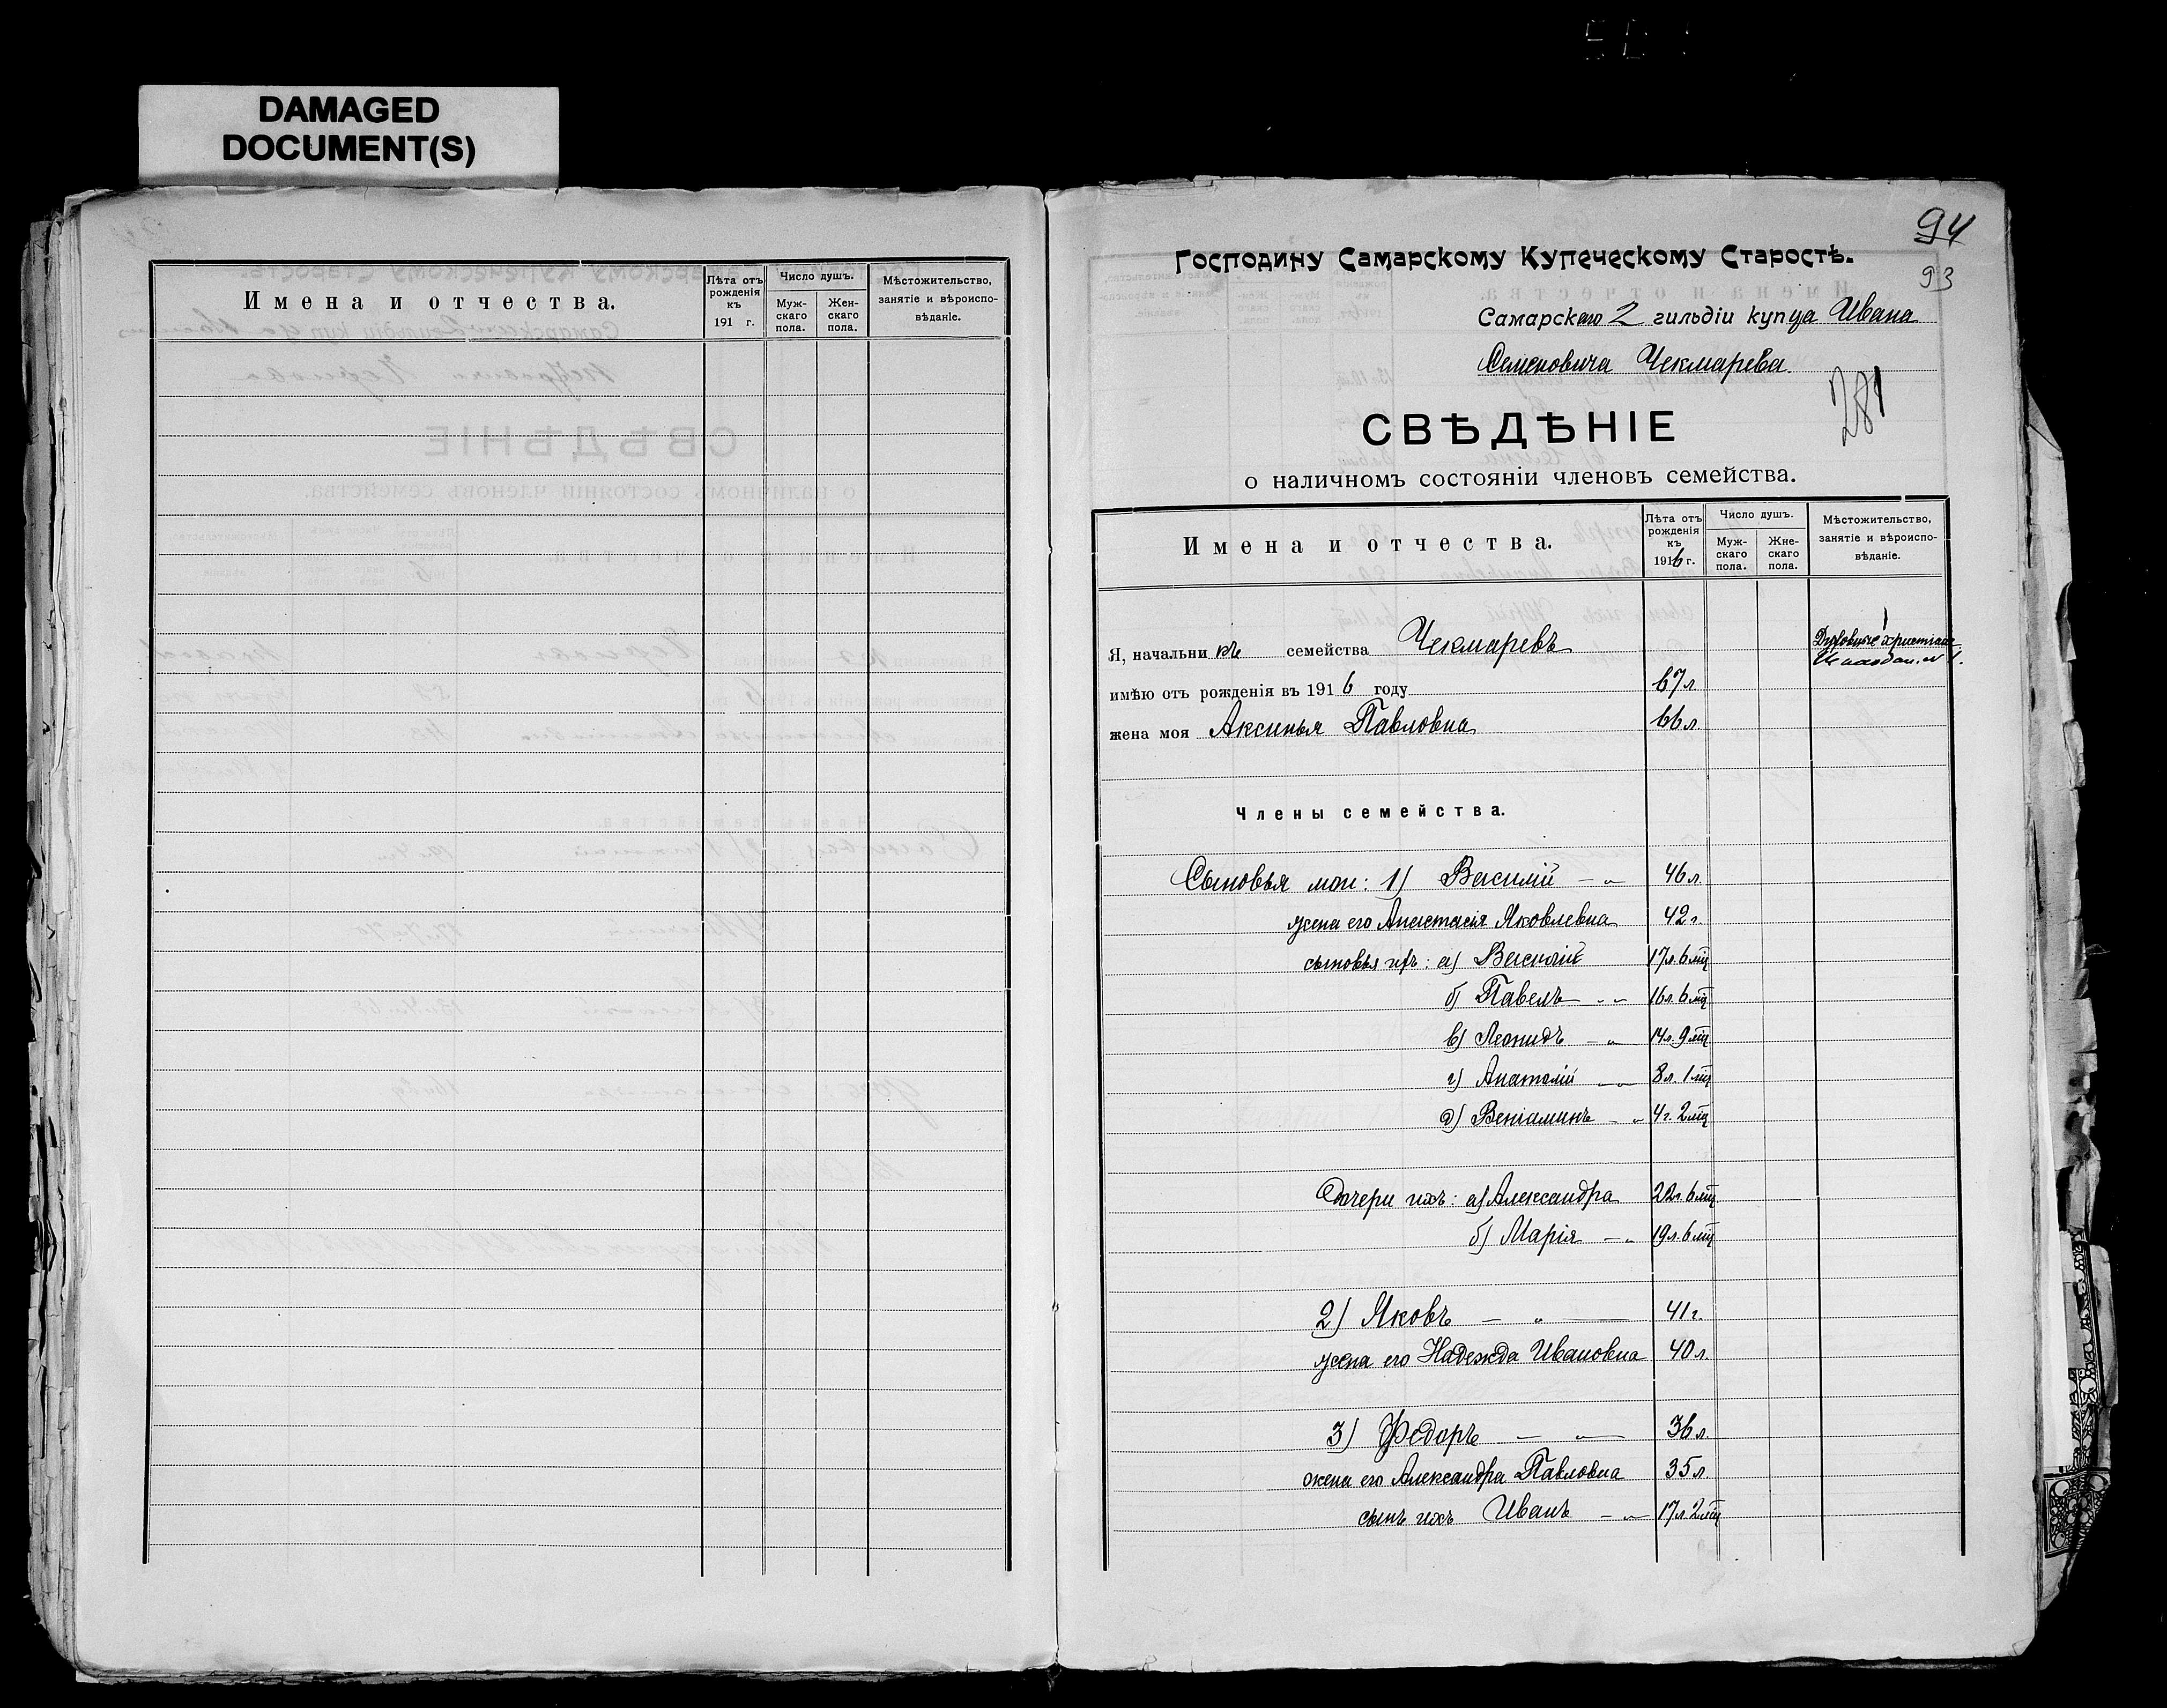 DAMAGED
DOCUMENT(S)
Имена и отчества.
Лѣта отъ рожденія къ 191 г.
Число душъ.
Муж-скаго пола.
Жен-скаго пола.
Мѣстожительство, занятіе и вѣроиспо-вѣданіе.
94
93
Господину Самарскому Купеческому Старостѣ.
Самарскаго 2 гильдіи купца Ивана
Семеновича Чекмарева.
281
СВѢДѢНІЕ
о наличномъ состояніи членовъ семейства.
Имена и отчества.
Лѣта отъ рожденія къ 1916 г.
Число душъ.
Муж-скаго пола.
Жне-скаго пола.
Мѣстожительство, занятіе и вѣроиспо-вѣданіе.
Я, начальникъ семейства Чекмаревъ
Духовные христіане
имѣю отъ рожденія въ 1916 году 67 л.
жена моя Аксинья Павловна 66 л.
Члены семейства.
Сыновья мои: 1) Василій — „ 46 л.
жена его Анастасія Яковлевна 42 г.
сыновья ихъ: а) Василій 17 л. 6 мц
б) Павелъ - „ 16 л. 6 мц
в) Леонидъ — „ 14 л. 9 мц
г) Анатолій — „ 8 л. 1 мц
д) Веніаминъ - „ 4 г. 2 мц
Дочери ихъ: а) Александра 22 г. 6 мц
б) Марія — „ 19 л. 6 мц
2) Яковъ — „ — 41 г.
жена его Надежда Ивановна 40 л.
3) Федоръ — „ — 36 л.
жена его Александра Павловна 35 л.
сынъ ихъ Иванъ - „ 17 л. 2 мц